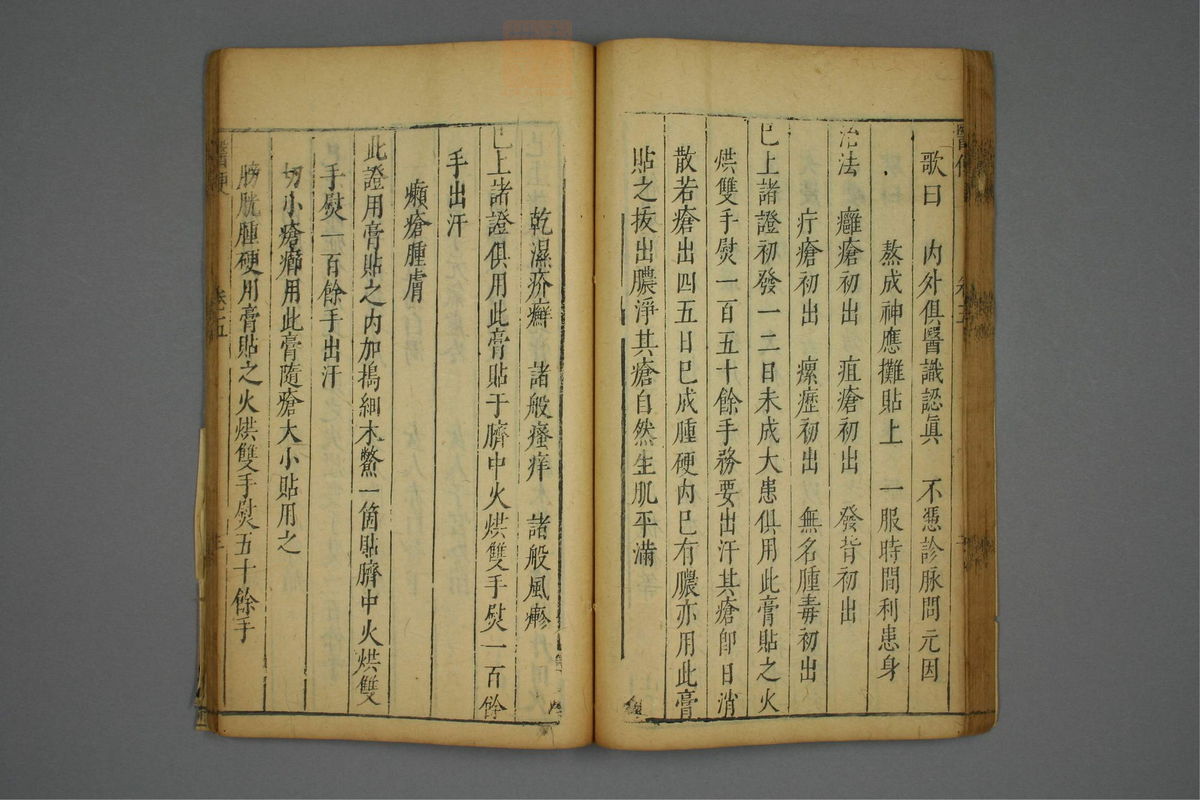 歌曰 內外俱醫識認眞 不慿診脉問元因
熬成神應攤貼上 一服時間利患身
治法 癰瘡初出 疽瘡初出 發背初出
疔瘡初出 瘰癧初出 無名腫毒初出
已上諸證初發一二日未成大患俱用此膏貼之火
烘雙手熨一百五十餘手務要出汗其瘡卽日消
散若瘡出四五日已成腫硬内已有膿亦用此膏
貼之拔出膿淨其瘡自然生肌平滿
乾濕疥癬 諸般瘙痒 諸般風㿇
已上諸證俱用此膏貼于臍中火烘雙手熨一百餘
手出汗
癩瘡腫膚
此證用膏貼之内加搗細木鱉一箇貼臍中火烘雙
手熨一百餘手出汗
切小瘡癤用此膏隨瘡大小貼用之
膀胱腫硬用膏貼之火烘雙手熨五十餘手
卷五